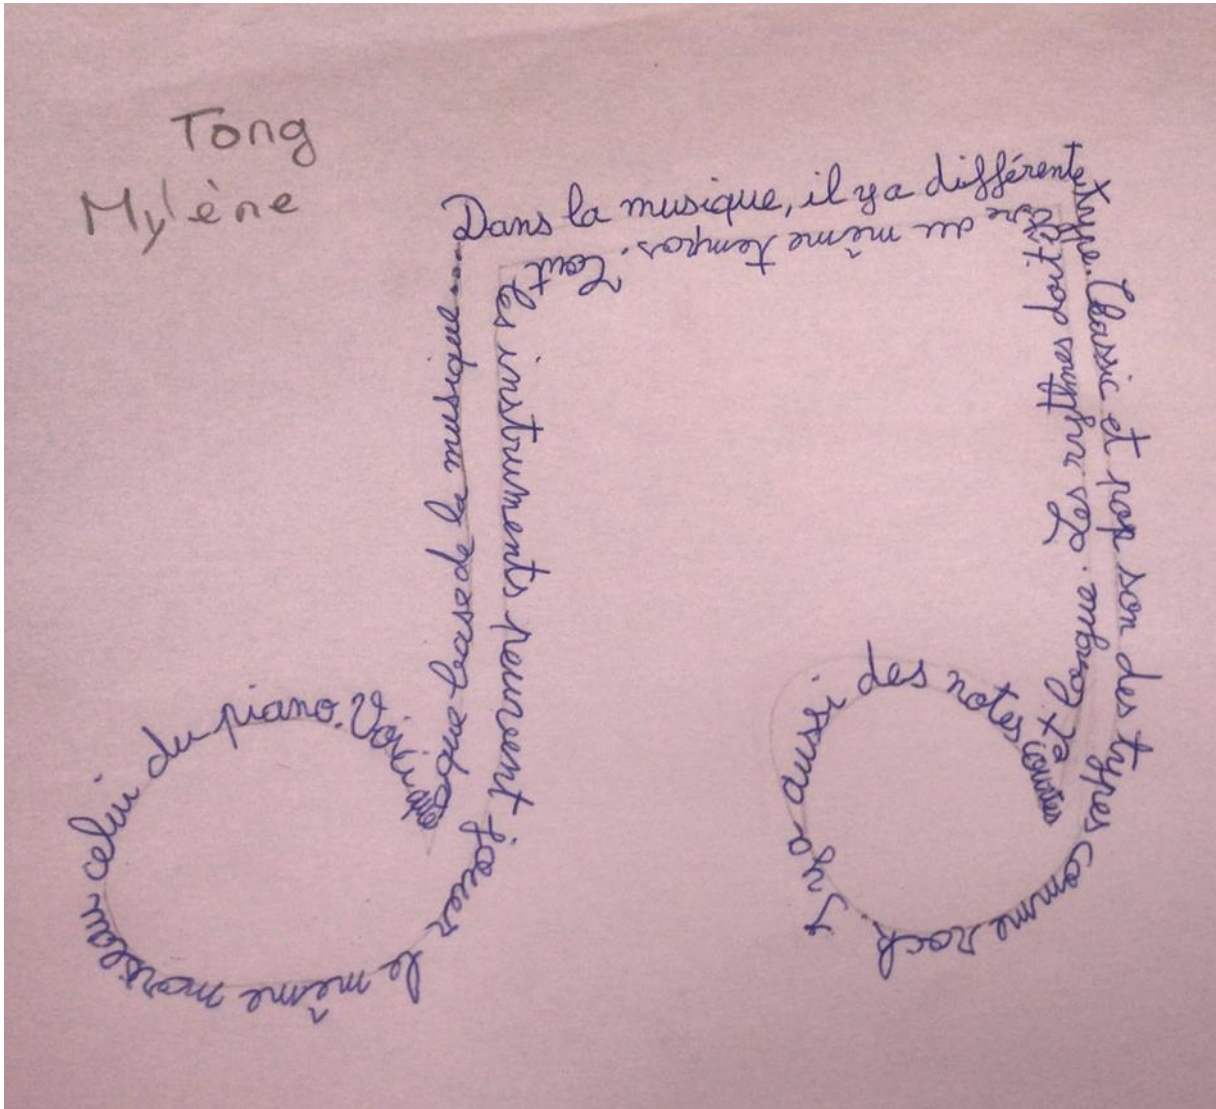 Tong
Mylène
Dans la musique, il y a différente
type. Classic et pop son des types comme rock.
I y a aussi des notes courtes
et longue. Les rythmes doit être
au même temps. Tout
les instruments peuvent jouer le même morceau celui du piano. Voici
que base de la musique....